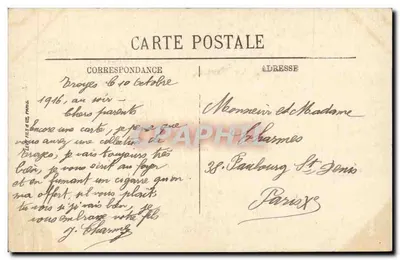 CARTE POSTALE
CORRESPONDANCE
ADRESSE
Troyes le 10 Octobre
1916, au soir
Chers parents
Encore une carte, je que
vous aurez une collection de
Troyes, je vais toujours très
bien, je vous écrit au
et en fumant un cigare qu'on
m'a offert,
vous embrasse votre fils
J. Charmes
Monsieur et Madame
Charmes
38. Faubourg St Denis
Paris X